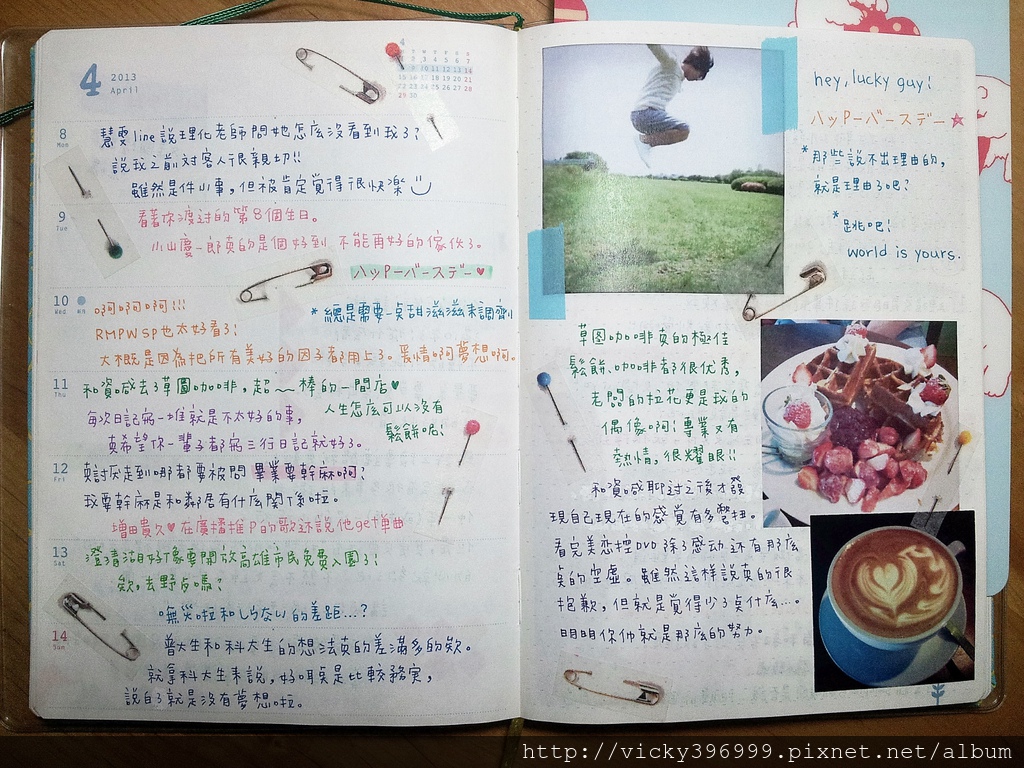 4 2013
April
8
Mon
慧雯line說理化老師問她怎麼沒看到我了?
說我之前対客人很親切!!
雖然是件小事,但被肯定覺得很快樂
9
Tue
看著你渡过的第8個生日。
小山慶一郎真的是個好到 不能再好的傢伙了。
ハッPーバースデー♥
10
Wed
啊啊啊啊!!!
*總是需要一点甜滋滋来調劑
RMPWSP也太好看了!
大概是因為把所有美好的因子都用上了。愛情啊夢想啊。
11
Thu
和資咸去了草圖咖啡,超~棒的一間店♥
每次日記寫一堆就是不太好的事,
人生怎麼可以沒有
鬆餅呢!
真希望你一輩子都寫三行日記就好了。
12
Fri
真討厌走到哪都要被問 畢業要幹麻啊?
我要幹麻是和鄰居有什么関係啦。
增田貴久♥在廣播推P的歌还說他get单曲
13
Sat
澄清湖好像要開放高雄市民免費入園了!
欸,去野餐嗎?
嘸災啦和しらない的差距...?
14
Sun
普大生和科大生的想法真的差滿多的欸。
就拿科大生来說,好啊是比較務実,
說白了就是没有夢想啦。
hey, lucky guy!
ハッPーバースデー☆
*那些說不出理由的,
就是理由了吧?
*跳吧!
world is yours.
草图咖啡真的極佳
鬆餅、咖啡都很优秀,
老闆的拉花更是我的
偶像啊!專業又有
熱情,很耀眼!!
和資咸聊过之後才發
現自己現在的感覚有多彆扭。
看完美恋控DVD除了感动还有那麼
点的空虛。雖然這样說真的很
抱歉,但就是覺得少了点什么...。
明明你们就是那麼的努力。
http://vicky396999.pixnet.net/album